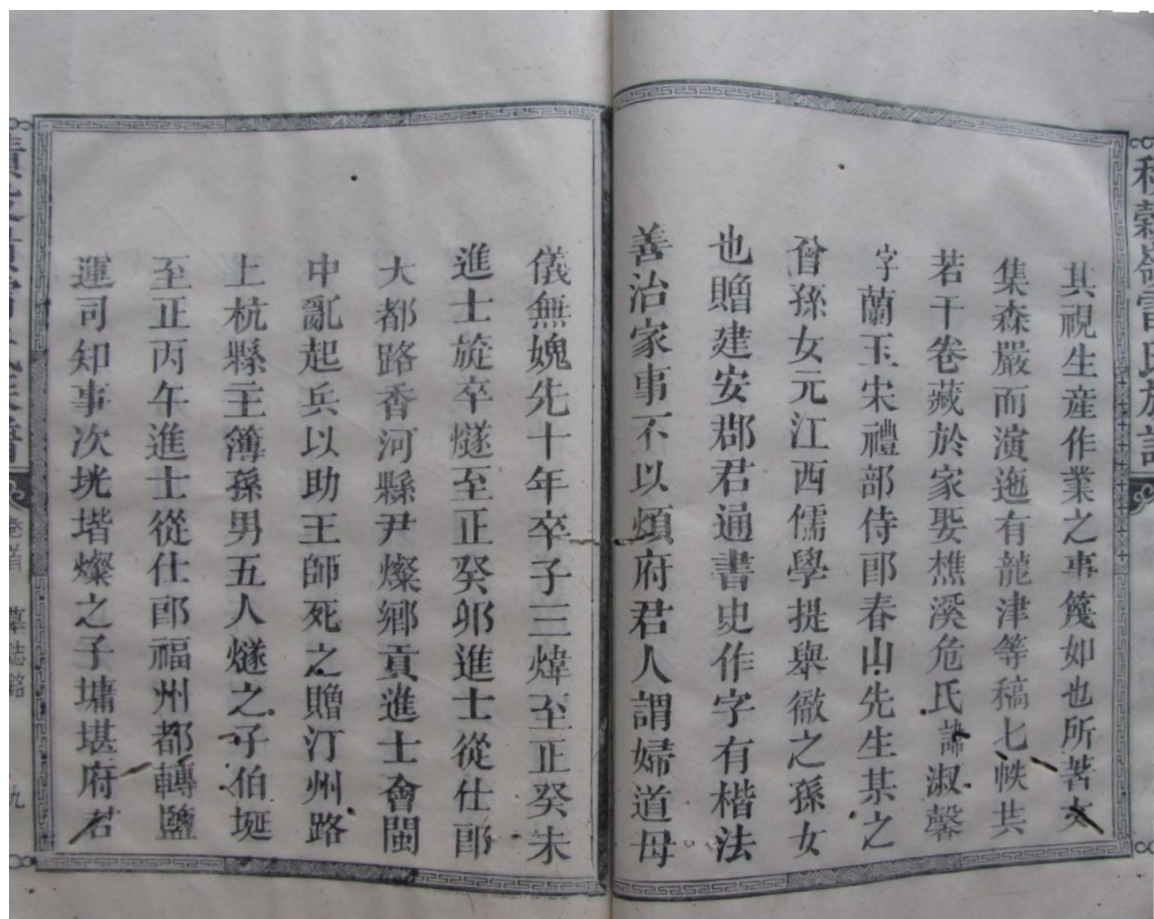 其視生産作業之事篾如也所著文
集森嚴而演迤有龍津等稿七帙共
若干卷藏於家娶樵溪危氏諱淑馨
字蘭玉宋禮部侍郎春山先生某之
曾孫女元江西儒學提舉徹之孫女
也贈建安郡君通書史作字有楷法
善治家事不以煩府君人謂婦道母
儀無媿先十年卒子三煒至正癸未
進士旋卒燧至正癸卯進士從仕郎
大都路香河縣尹燦鄉貢進士會閩
中亂起兵以助王師死之贈汀州路
上杭縣主簿孫男五人燧之子伯埏
至正丙午進士從仕郎福州都轉鹽
運司知事次垙堦燦之子墉堪府君
卷首
墓誌銘
九